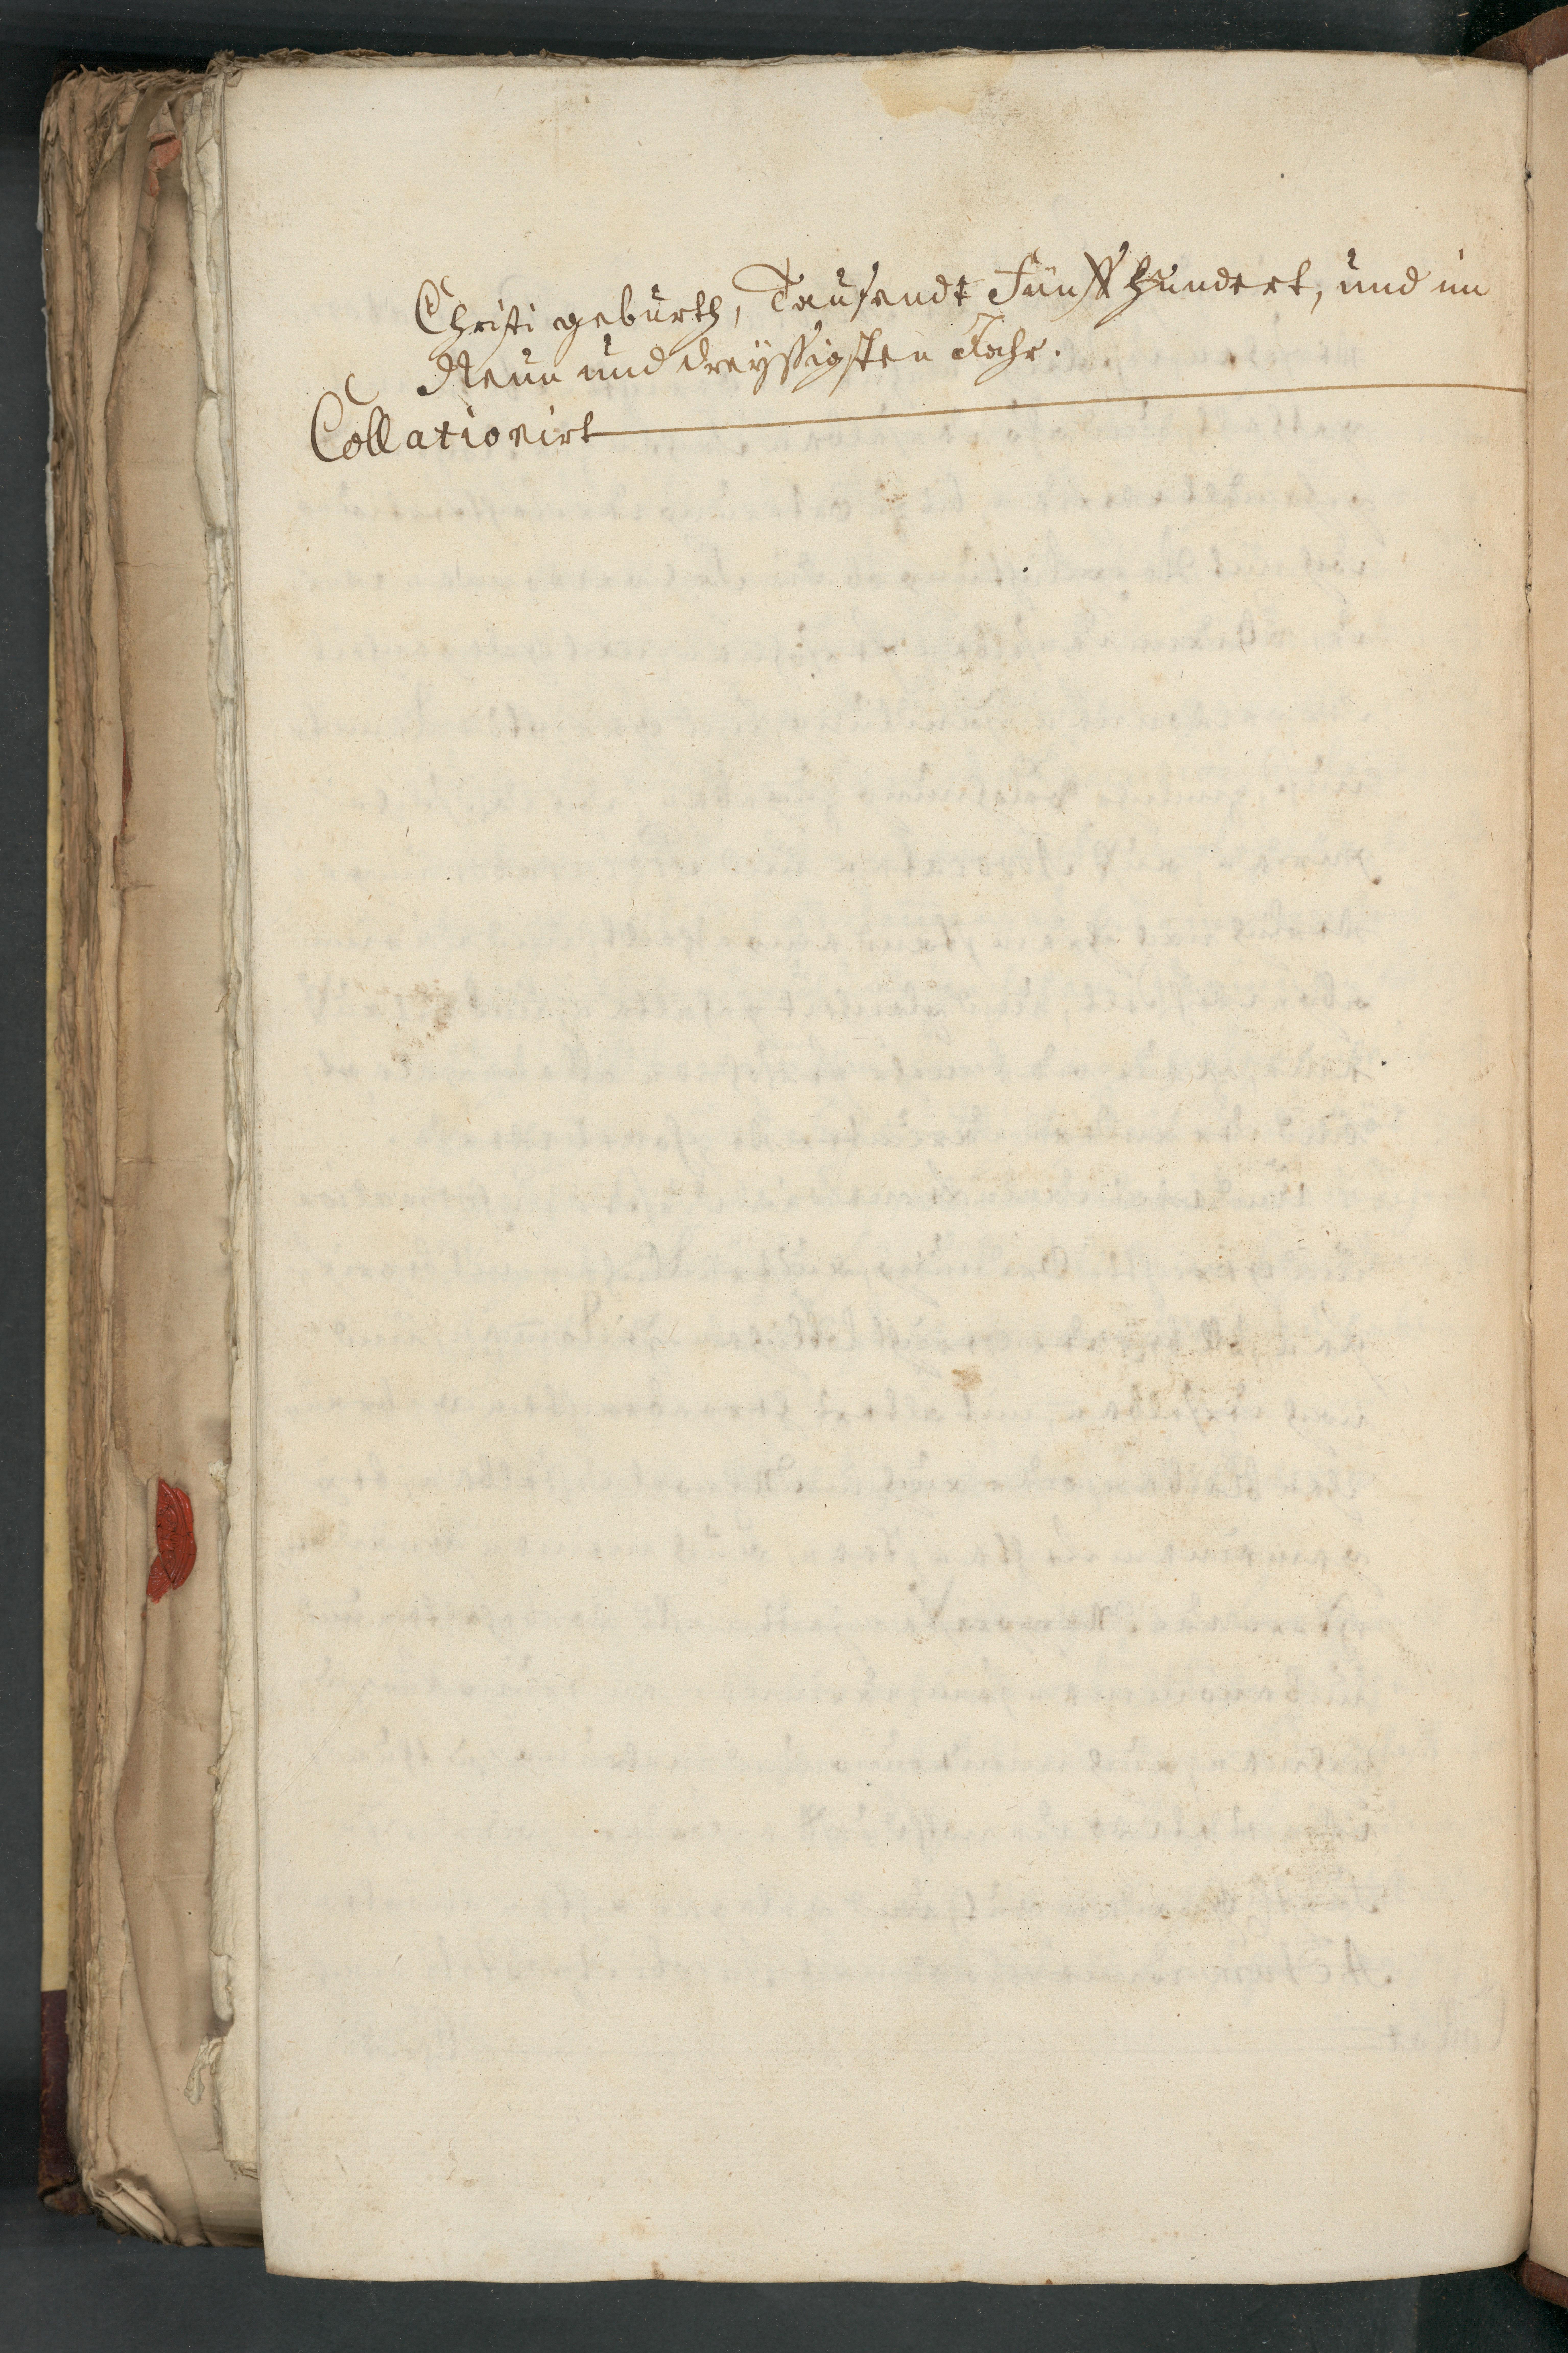 Christi geburth, Tausendt Fünff Hundert, und im
Neun und dreyssigsten Jahr.
Collationirt